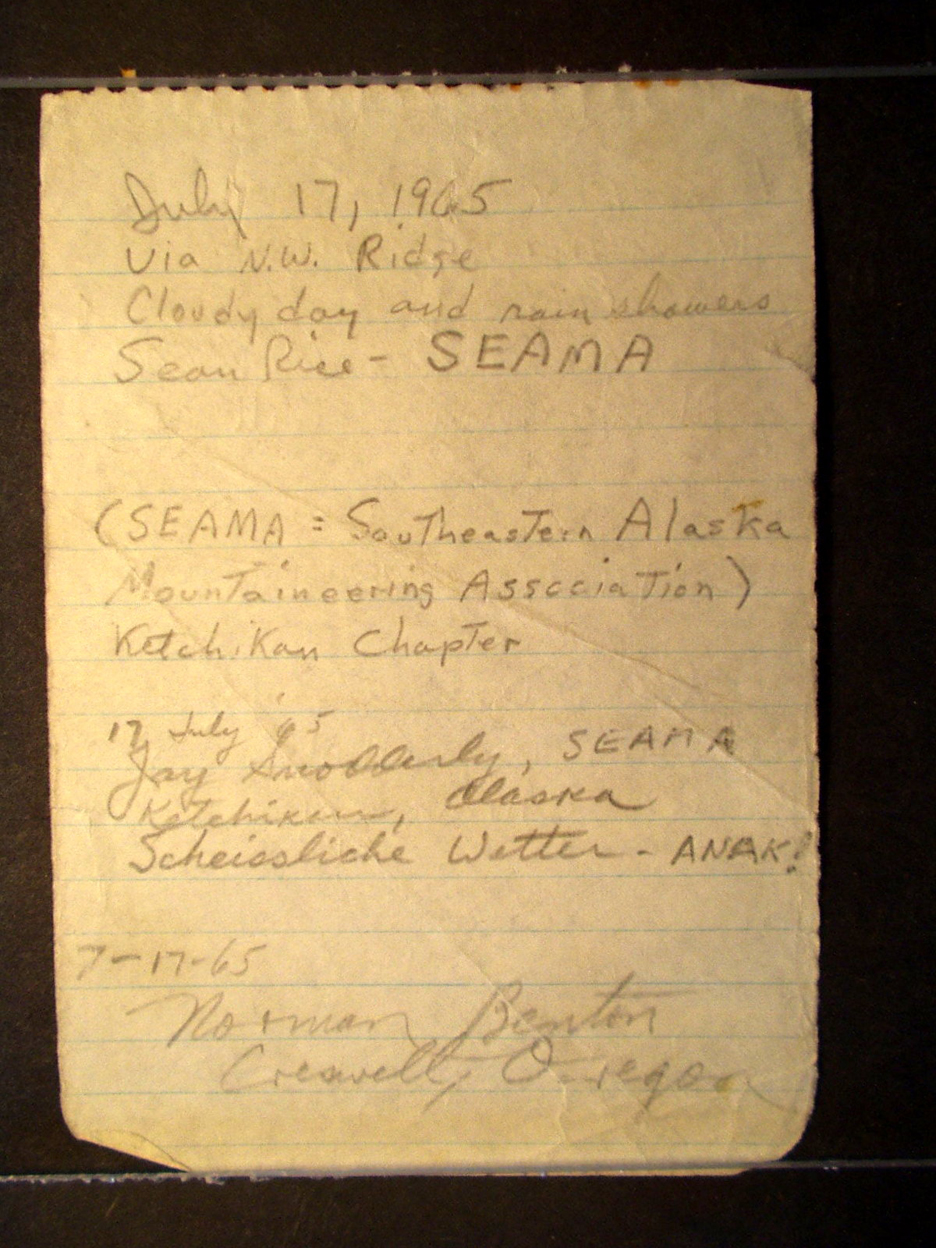 July 17, 1965
via N.W. Ridge
Cloudy day and rain showers
Sean Rice - SEAMA
(SEAMA = Southeastern Alaska
Mountaineering Association)
Ketchikan Chapter
17 July '65
Jay Snodderly, SEAMA
Ketchikan, Alaska
Scheissliche Wetter - ANAK!
7-17-65
Norman Benton
Creswell, Oregon